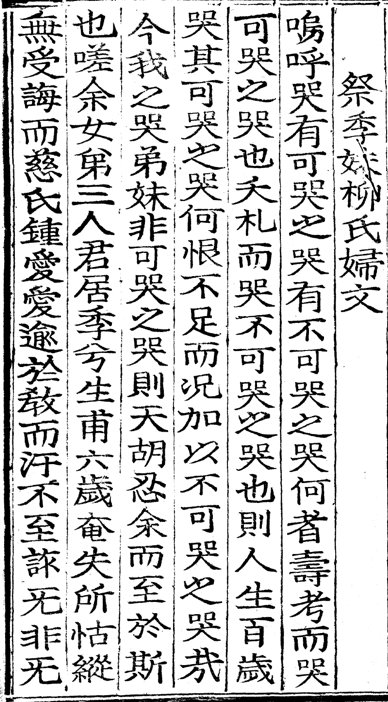 祭季妹柳氏婦文
嗚呼哭有可哭之哭有不可哭之哭何者壽考而哭
可哭之哭也夭札而哭不可哭之哭也則人生百歲
哭其可哭之哭何恨不足而况加以不可哭之哭㢤
今我之哭弟妹非可哭之哭則天胡忍余而至於斯
也嗟余女弟三人君居季兮生甫六歲奄失所怙縱
無受誨而慈氏鍾愛愛逾於敎而汙不至訹旡非旡